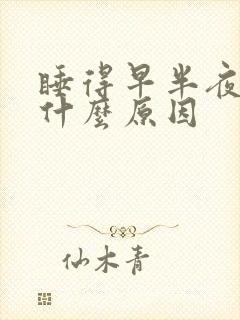 睡得早半夜
什麼原因
仙木青